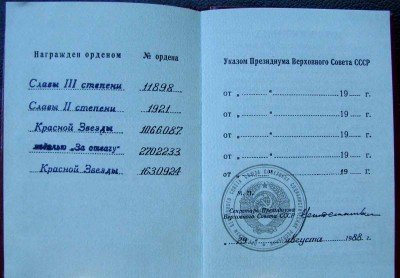 Награжден орденом № ордена
Славы III степени 11898
Славы II степени 1921
Красной Звезды 1066087
медалью "За отвагу" 2702233
Красной Звезды 1630924
Указом Президиума Верховного Совета СССР
от „ " 19 г.
от „ " 19 г.
от „ " 19 г.
от „ " 19 г.
от „ " 19 г.
М. П.
Секретарь Президиума
Верховного Совета СССР
августа 1988 г.